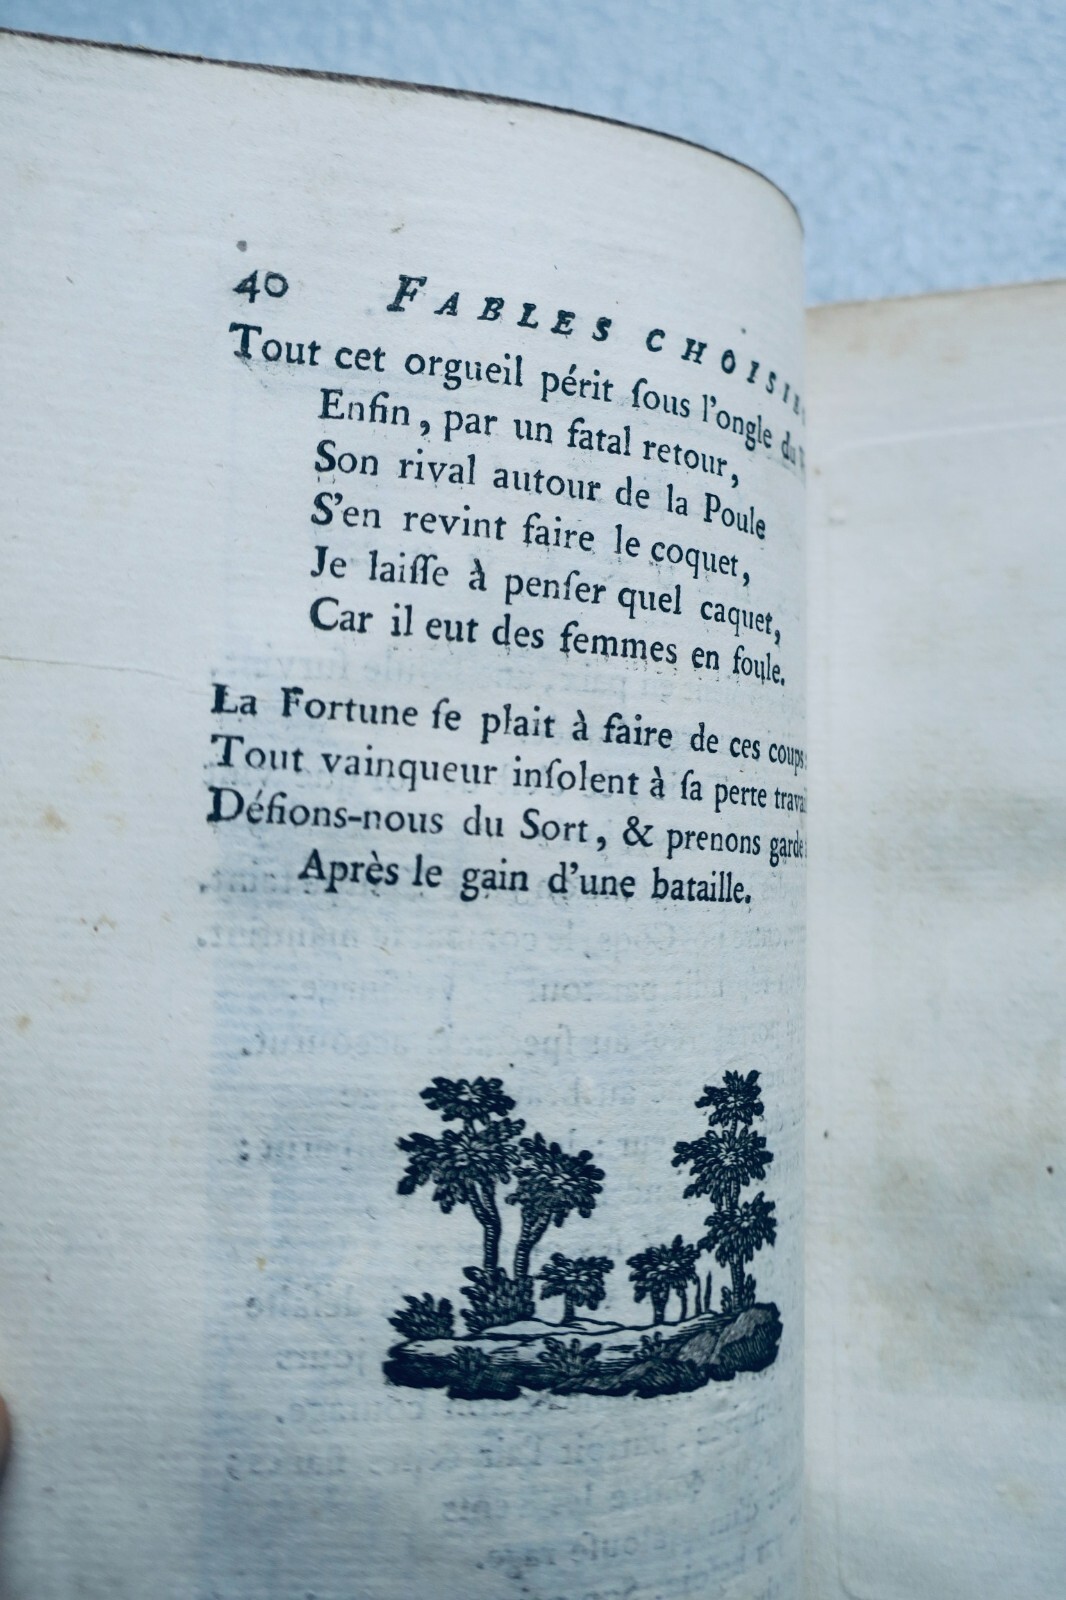 40 FABLES CHOISIE
Tout cet orgueil périt ſous l'ongle du
Enfin, par un fatal retour,
Son rival autour de la Poule
S'en revint faire le coquet,
Je laiſſe à penſer quel caquet,
Car il eut des femmes en foule.
La Fortune ſe plait à faire de ces coups:
Tout vainqueur inſolent à ſa perte trava
Défions-nous du Sort, & prenons garde
Après le gain d'une bataille.